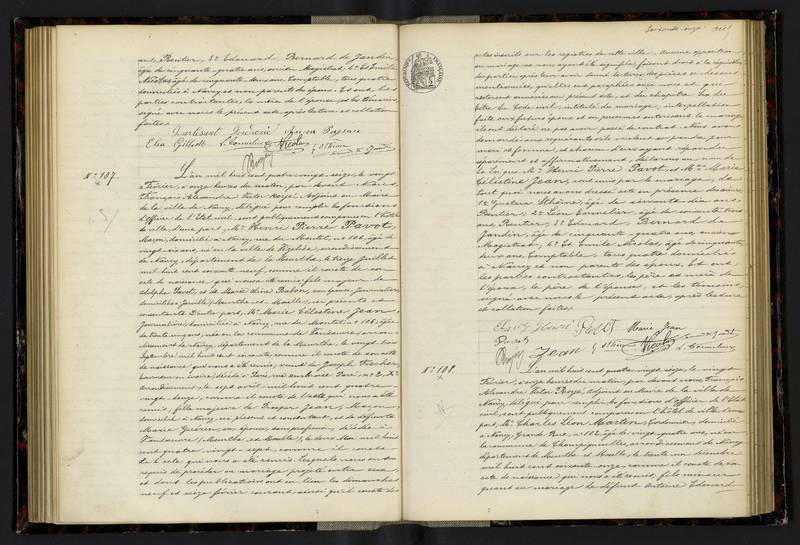 ans, Rentier, 3° Edouard, Bernard de Jandin
âgé de cinquante quatre ans, ancien Magistrat, 4° Et Emile
Nicolas âgé de cinquante deux ans, Comptable, tous quatre
domiciliés à Nancy et non parents des époux. Et ont, les
parties contractantes, la mère de l'épouse, et les témoins,
signé avec nous le présent acte, après lecture et collation
faites.
Elia Gillott L. Connelier Nicolas
N° 107.
L'an mil huit cent quatre vingt seize, le vingt
Février, à onze heures du matin, par devant nous
François Alexandre Victor Boyé, Adjoint au Maire
de la ville de Nancy, délégué pour remplir les fonctions
d'officier de l'Etat civil, sont publiquement comparus en l'hôtel
de ville, d'une part, Mr Henri Pierre Parot,
Maçon, domicilié à Nancy, rue du Montet, n° 106, âgé de
vingt six ans, né en la ville de Vézelise, arrondissement
de Nancy, département de la Meurthe, le treize Juillet
mil huit cent soixante neuf, comme il conste de son
acte de naissance qui nous a été remis, fils majeur de
Adolphe Parot, et de Marie Aline Babon, son épouse, Journaliers,
domiciliés à (Meurthe et Moselle), ici présents et
consentants D'autre part, Mlle Marie Célestine Jean,
Journalière, domiciliée à Nancy, rue du Montet, n° 106, âgée
de trente cinq ans, née en la commune de Vandœuvre, arron-
dissement de Nancy, département de la Meurthe, le vingt huit
Septembre mil huit cent soixante, comme il conste de son acte
de naissance qui nous a été remis, veuve de Joseph Fischer,
décédé à Paris,
arrondissement, le sept avril mil huit cent quatre
vingt douze, comme il conste de l'acte qui nous a été
remis, fille majeure de Prosper Jean, Maçon,
domicilié à Nancy, ici présent et consentant, et de défunte
Marie Guérin, son épouse, sans profession, décédée à
Vandœuvre (Meurthe et Moselle), le deux mai mil huit
cent quatre vingt sept, comme il conste
de l'acte qui nous a été remis. Lesquels nous ont
requis de procéder au mariage projeté entre eux,
et dont les publications ont eu lieu les dimanches
neuf et seize février courant ainsi qu'il conste des
Soixante-onze
actes inscrits sur les registres de cette ville. Aucune opposition
au mariage ne nous ayant été signifiée, faisant droit à la réquisition
des parties, après leur avoir donné lecture des pièces ci-dessus
mentionnées, qu'elles ont paraphées avec nous et qui
resteront annexées au présent acte, et du chapitre six du
titre du Code civil, intitulé du mariage, interpellation
faite aux futurs époux et aux personnes autorisant le mariage
ils ont déclaré ne pas avoir passé de contrat. Nous avons
demandé aux requérants s'ils veulent se prendre pour
mari et femme, et chacun d'eux ayant répondu
séparément et affirmativement, déclarons au nom de
la Loi, que Mr Henri Pierre Parot, et Mlle Marie
Célestine Jean, sont unis par le mariage, de
tout quoi nous avons dressé acte en présence des sieurs
1° Gustave Sthème, âgé de soixante dix ans,
Rentier, 2° Léon Connelier, âgé de soixante trois
ans, Rentier, 3° Edouard, Bernard de
Jandin, âgé de cinquante quatre ans, ancien
Magistrat, 4° Et Emile Nicolas, âgé de cinquante
deux ans, Comptable, tous quatre domiciliés
à Nancy et non parents des époux. Et ont
les parties contractantes, les père et mère de
l'époux, le père de l'épouse, et les témoins,
signé avec nous le présent acte, après lecture
et collation faites.
Henri Parot Marie Jean
Parot
Boyé Jean Nicolas
N° 108.
L'an mil huit cent quatre vingt seize, le vingt
Février, à onze heures du matin, par devant nous François
Alexandre Victor Boyé, Adjoint au Maire de la ville de
Nancy, délégué pour remplir les fonctions d'officier de l'Etat
civil, sont publiquement comparus en l'hôtel de ville, d'une
part, Mr Charles Léon Martin, Cordonnier, domicilié
à Nancy, Grande Rue, n° 102, âgé de vingt quatre ans, né en
la commune de Champigneulles, arrondissement de Nancy,
département de Meurthe et Moselle, le trente un décembre
mil huit cent soixante onze, comme il conste de son
acte de naissance qui nous a été remis, fils mineur
quant au mariage de défunt Antoine Edouard